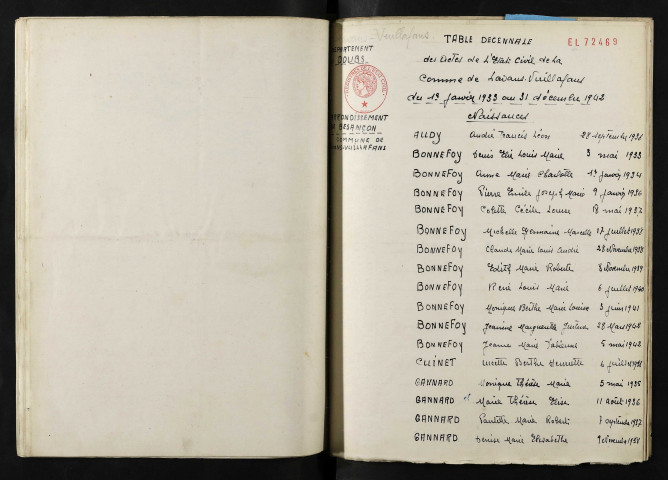 DEPARTEMENT
DOUBS
ARRONDISSEMENT
BESANÇON
COMMUNE DE
VUILLAFANS
TABLE DECENNALE
EL 72469
des Actes de l'Etat Civil de la
Commune de Lavans-Vuillafans
du 1er Janvier 1933 au 31 décembre 1942
Naissances
AUDY André Francis Léon 28 septembre 1938
BONNEFOY Denis Elie Louis Marie 3 mai 1933
BONNEFOY Anna Marie Charlotte 1er Janvier 1934
BONNEFOY Pierre Emile Joseph Marie 9 janvier 1936
BONNEFOY Colette Cécile Louise 18 mai 1937
BONNEFOY Michelle Germaine Marcelle 17 juillet 1938
BONNEFOY Claude Marie Louis André 28 Novembre 1938
BONNEFOY Edith Marie Roberte 8 Novembre 1939
BONNEFOY René Louis Marie 6 juillet 1940
BONNEFOY Monique Berthe Marie Louise 3 juin 1941
BONNEFOY Jeannine Marguerite 28 Mars 1942
BONNEFOY Jeanne Marie 5 mai 1942
CUINET Berthe Henriette 4 juillet
GANNARD Monique Thérèse Marie 5 mai 1935
GANNARD Marie Thérèse Elise 11 août 1936
GANNARD Paulette Marie Robert septembre 1937
GANNARD Denise Marie Elisabeth 9 Novembre 1938